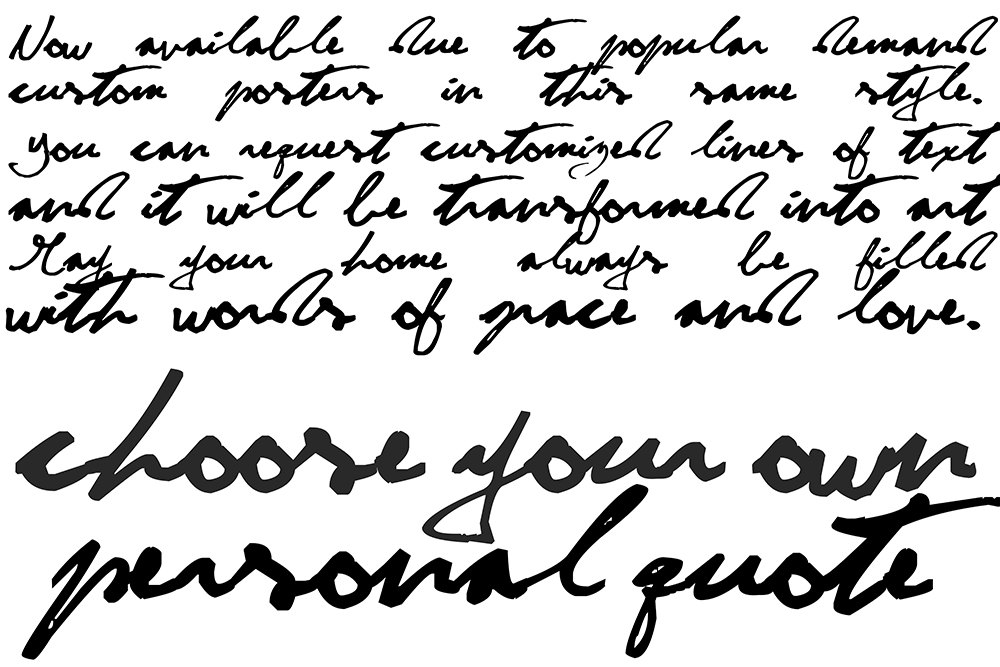 Now available due to popular demand
custom posters in this same style.
You can request customized lines of text
and it will be transformed into art
May your home always be filled
with words of peace and love.
choose your own
personal quote